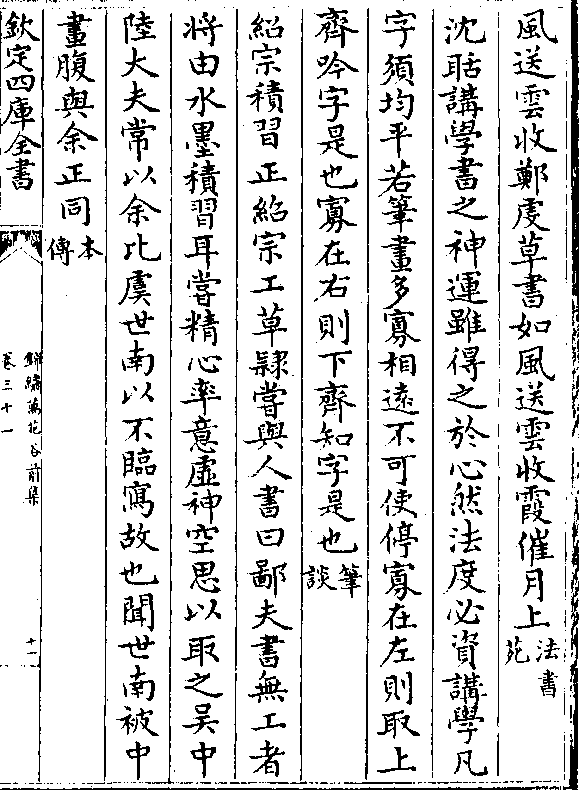 風送雲收鄭虔草書如風送雲收霞催月上法書苑
沈聒講學書之神運雖得之於心然法度必資講學凡
字須均平若筆畫多寡相遠不可使停寡在左則取上
齊吟字是也寡在右則下齊知字是也筆談
紹宗積習正紹宗工草隷嘗與人書曰鄙夫書無工者
将由水墨積習耳嘗精心率意虛神空思以取之吳中
陸大夫常以余比虞世南以不臨寫故也聞世南被中
畫腹與余正同本傳
欽定四庫全書
錦繡萬花谷前集
卷三十一
十一